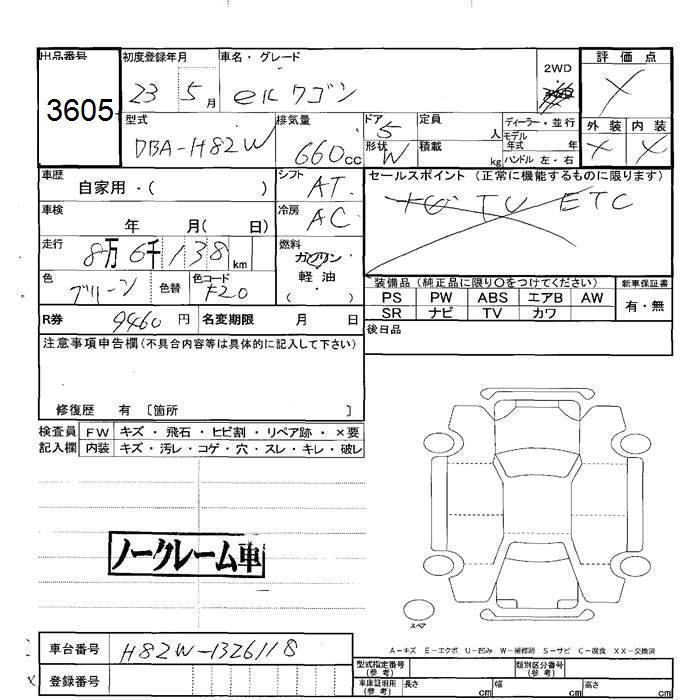 出品番号
3605
初度登録年月
23 5月
車名・グレード
eKワゴン
2WD
評価点
X
外装 内装
X X
型式
DBA-H82W
排気量
660cc
ドア 5
形状 W
定員 人
積載 kg
ディーラー・並行
モデル年式 年
ハンドル 左・右
車歴
自家用・( )
シフト AT
冷房 AC
車検
年 月( 日)
走行
8万6千138km
燃料
ガソリン
軽油
( )
色
グリーン
色替
色コード
F20
R券 9460円
名変期限 月 日
セールスポイント (正常に機能するものに限ります)
TV ETC
装備品 (純正品に限り〇をつけてください)
新車保証書
PS PW ABS エアB AW
SR ナビ TV カワ
有・無
後日品
注意事項申告欄(不具合内容等は具体的に記入して下さい)
修復歴 有 〔箇所 〕
検査員記入欄
FW キズ・飛石・ヒビ割・リペア跡・×要
内装 キズ・汚レ・コゲ・穴・スレ・キレ・破レ
ノークレーム車
スペア
A－キズ E－エクボ U－凹み W－補修跡 S－サビ C－腐食 XX－交換済
車台番号 H82W-1326118
登録番号
型式指定番号(参考)
類別区分番号(参考)
車庫証明用(参考)
長さ cm 幅 cm 高さ cm